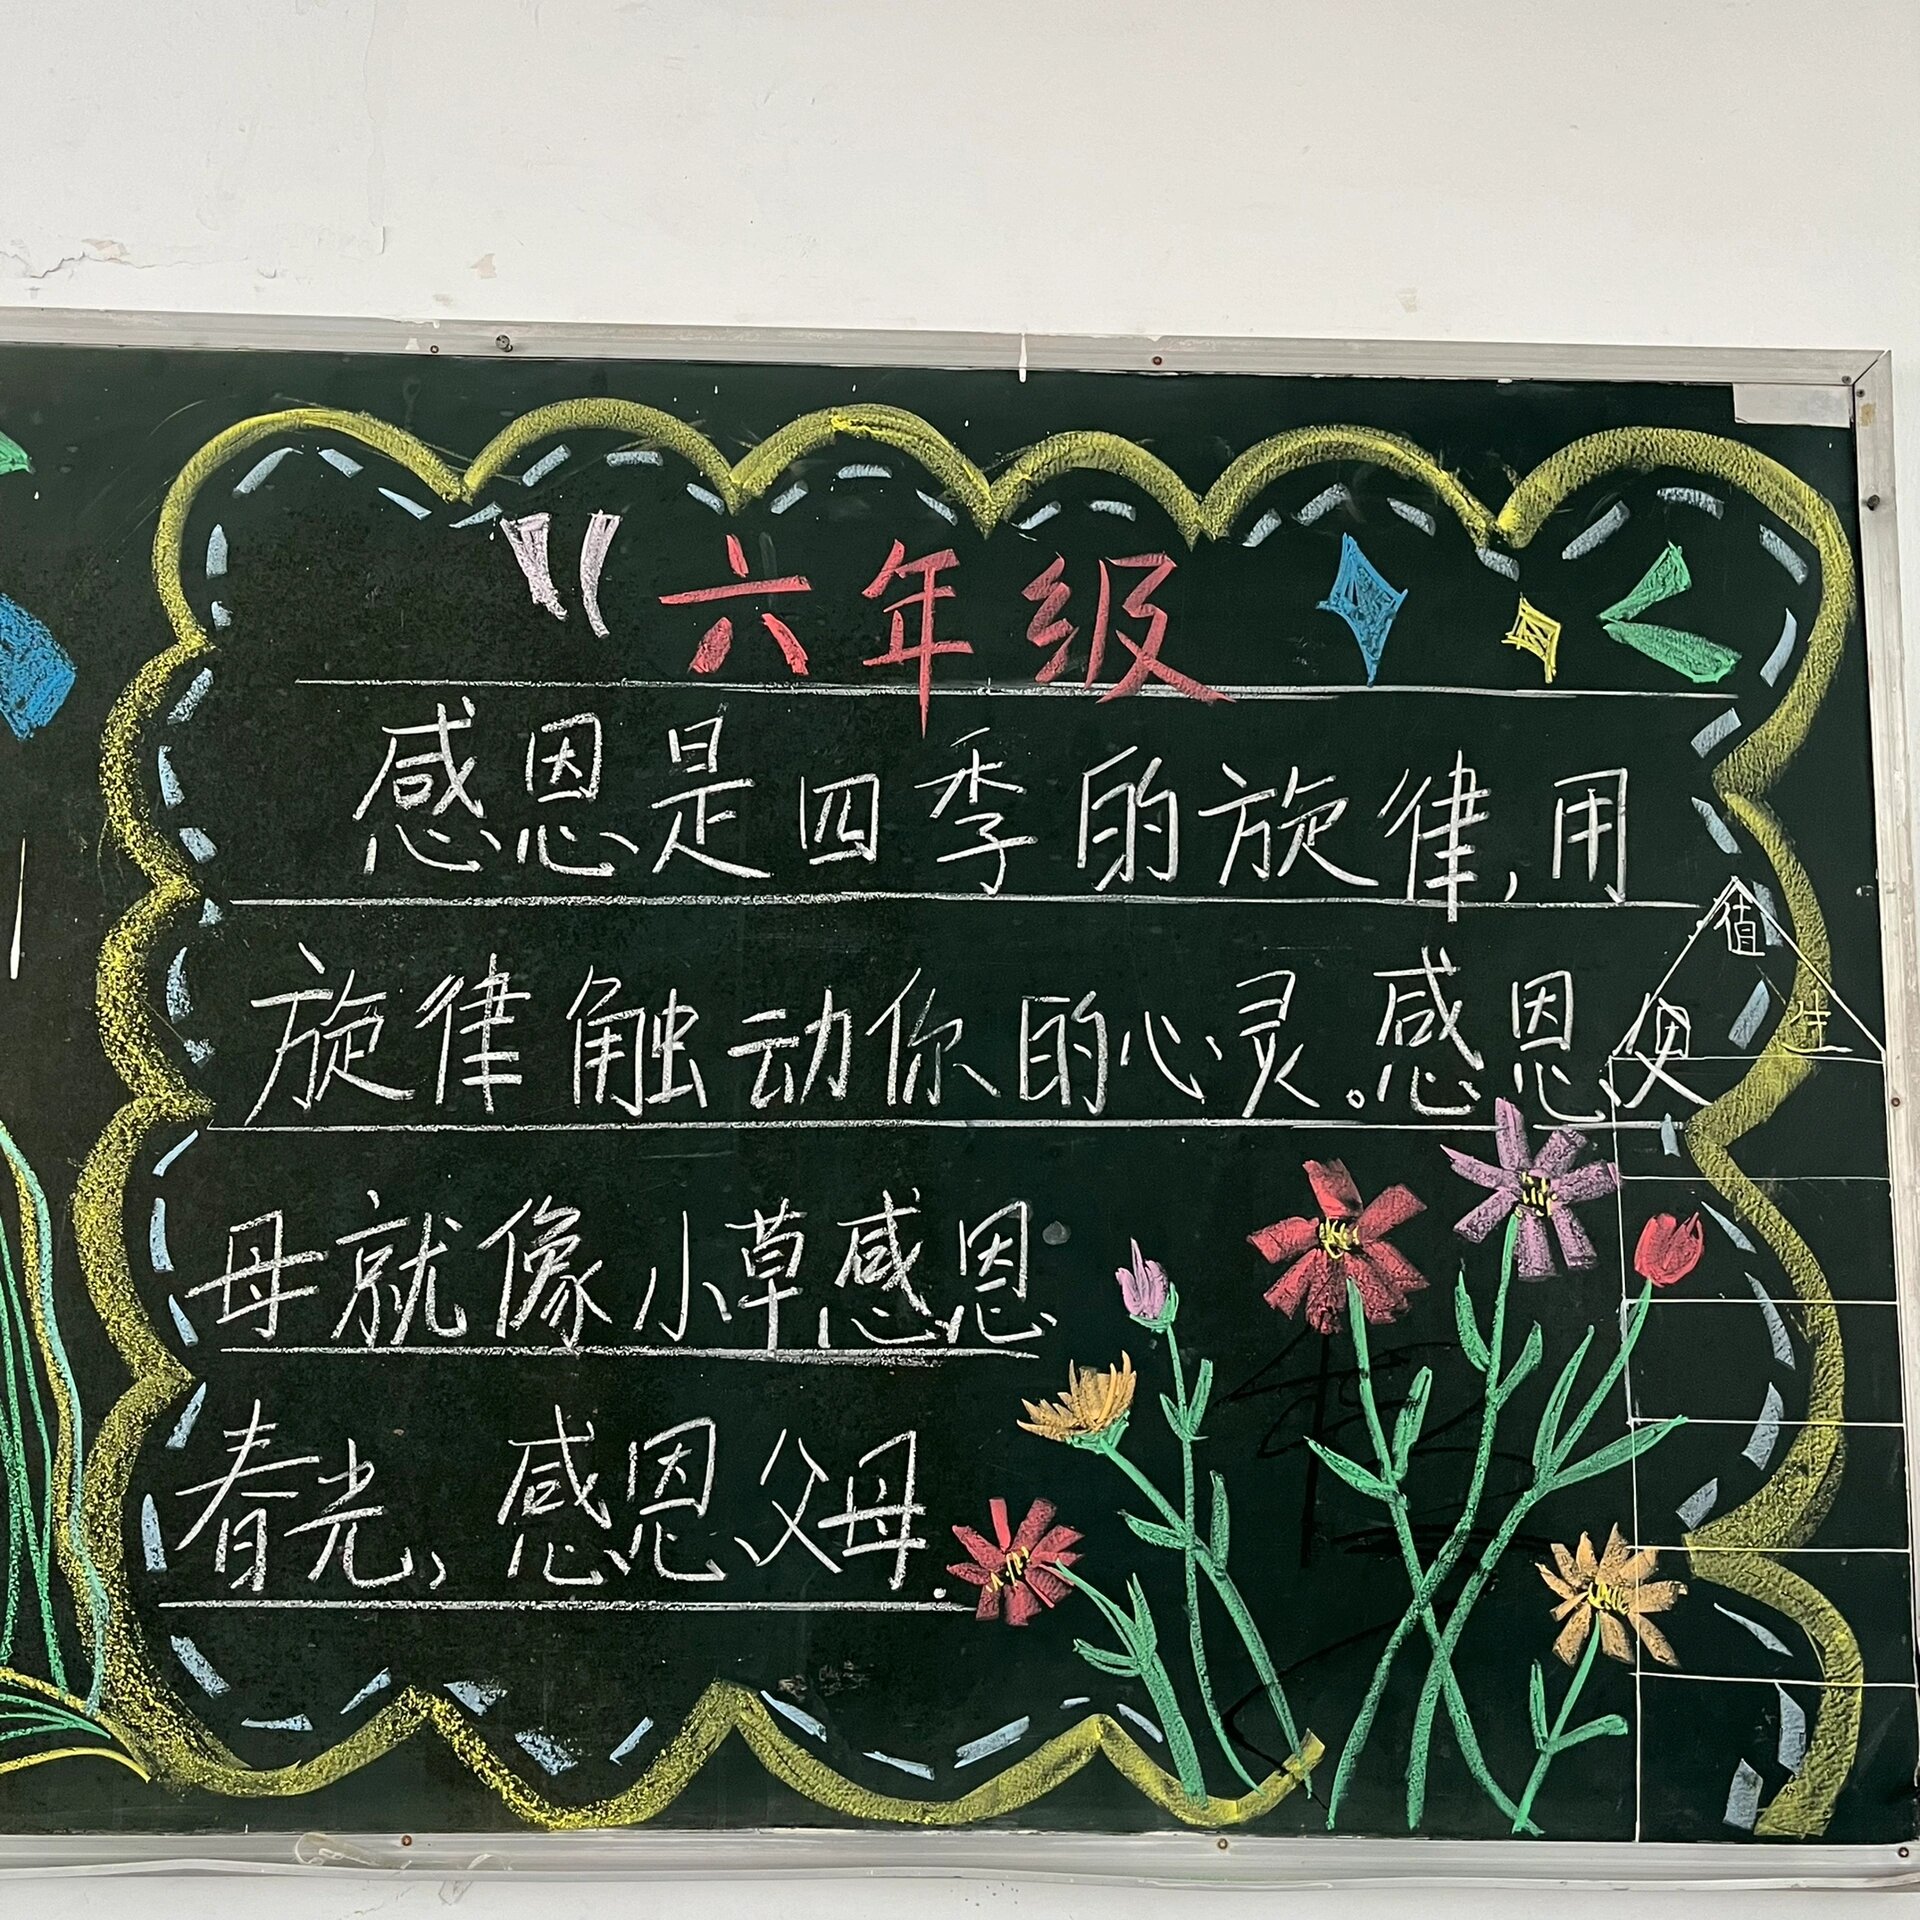 六年级
感恩是四季的旋律,用
旋律触动你的心灵。感恩父
母就像小草感恩
春光,感恩父母.
值
生